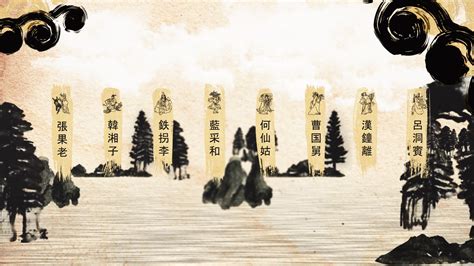 張果老
韓湘子
鉄拐李
藍采和
何仙姑
曹国舅
漢鐘離
呂洞賓